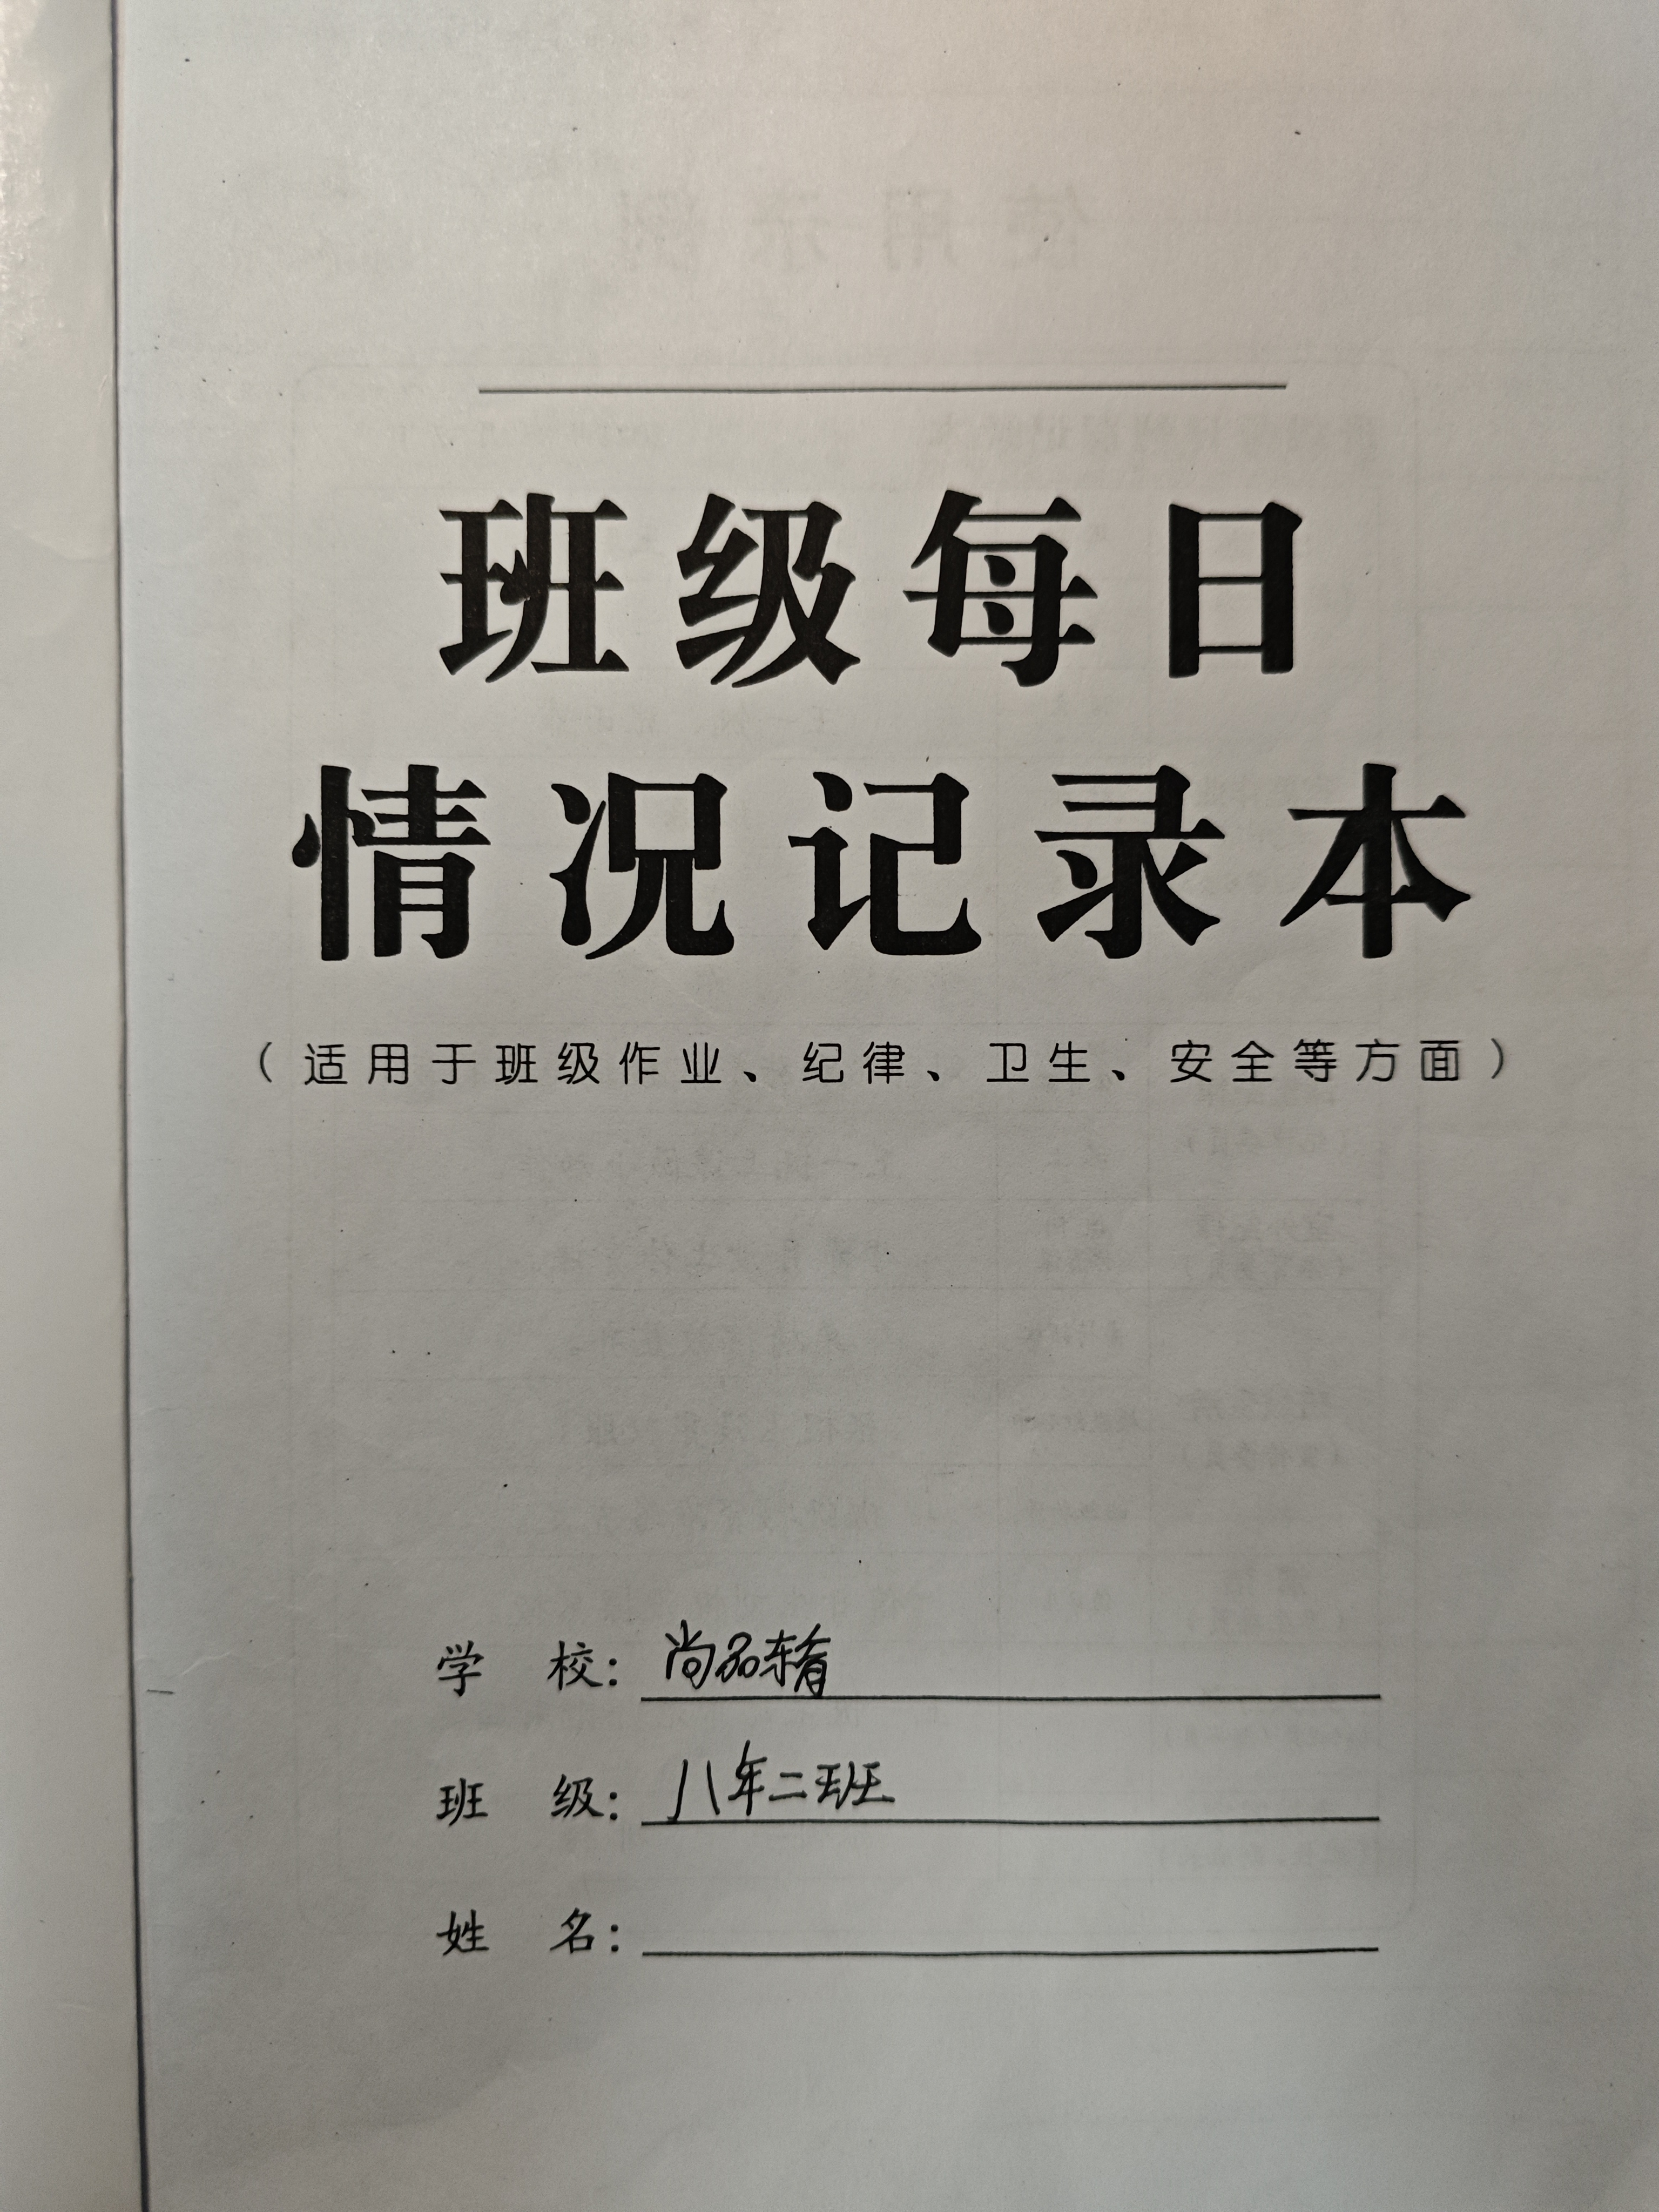 班级每日
情况记录本
（适用于班级作业、纪律、卫生、安全等方面）
学 校：尚品
班 级：八年二班
姓 名：